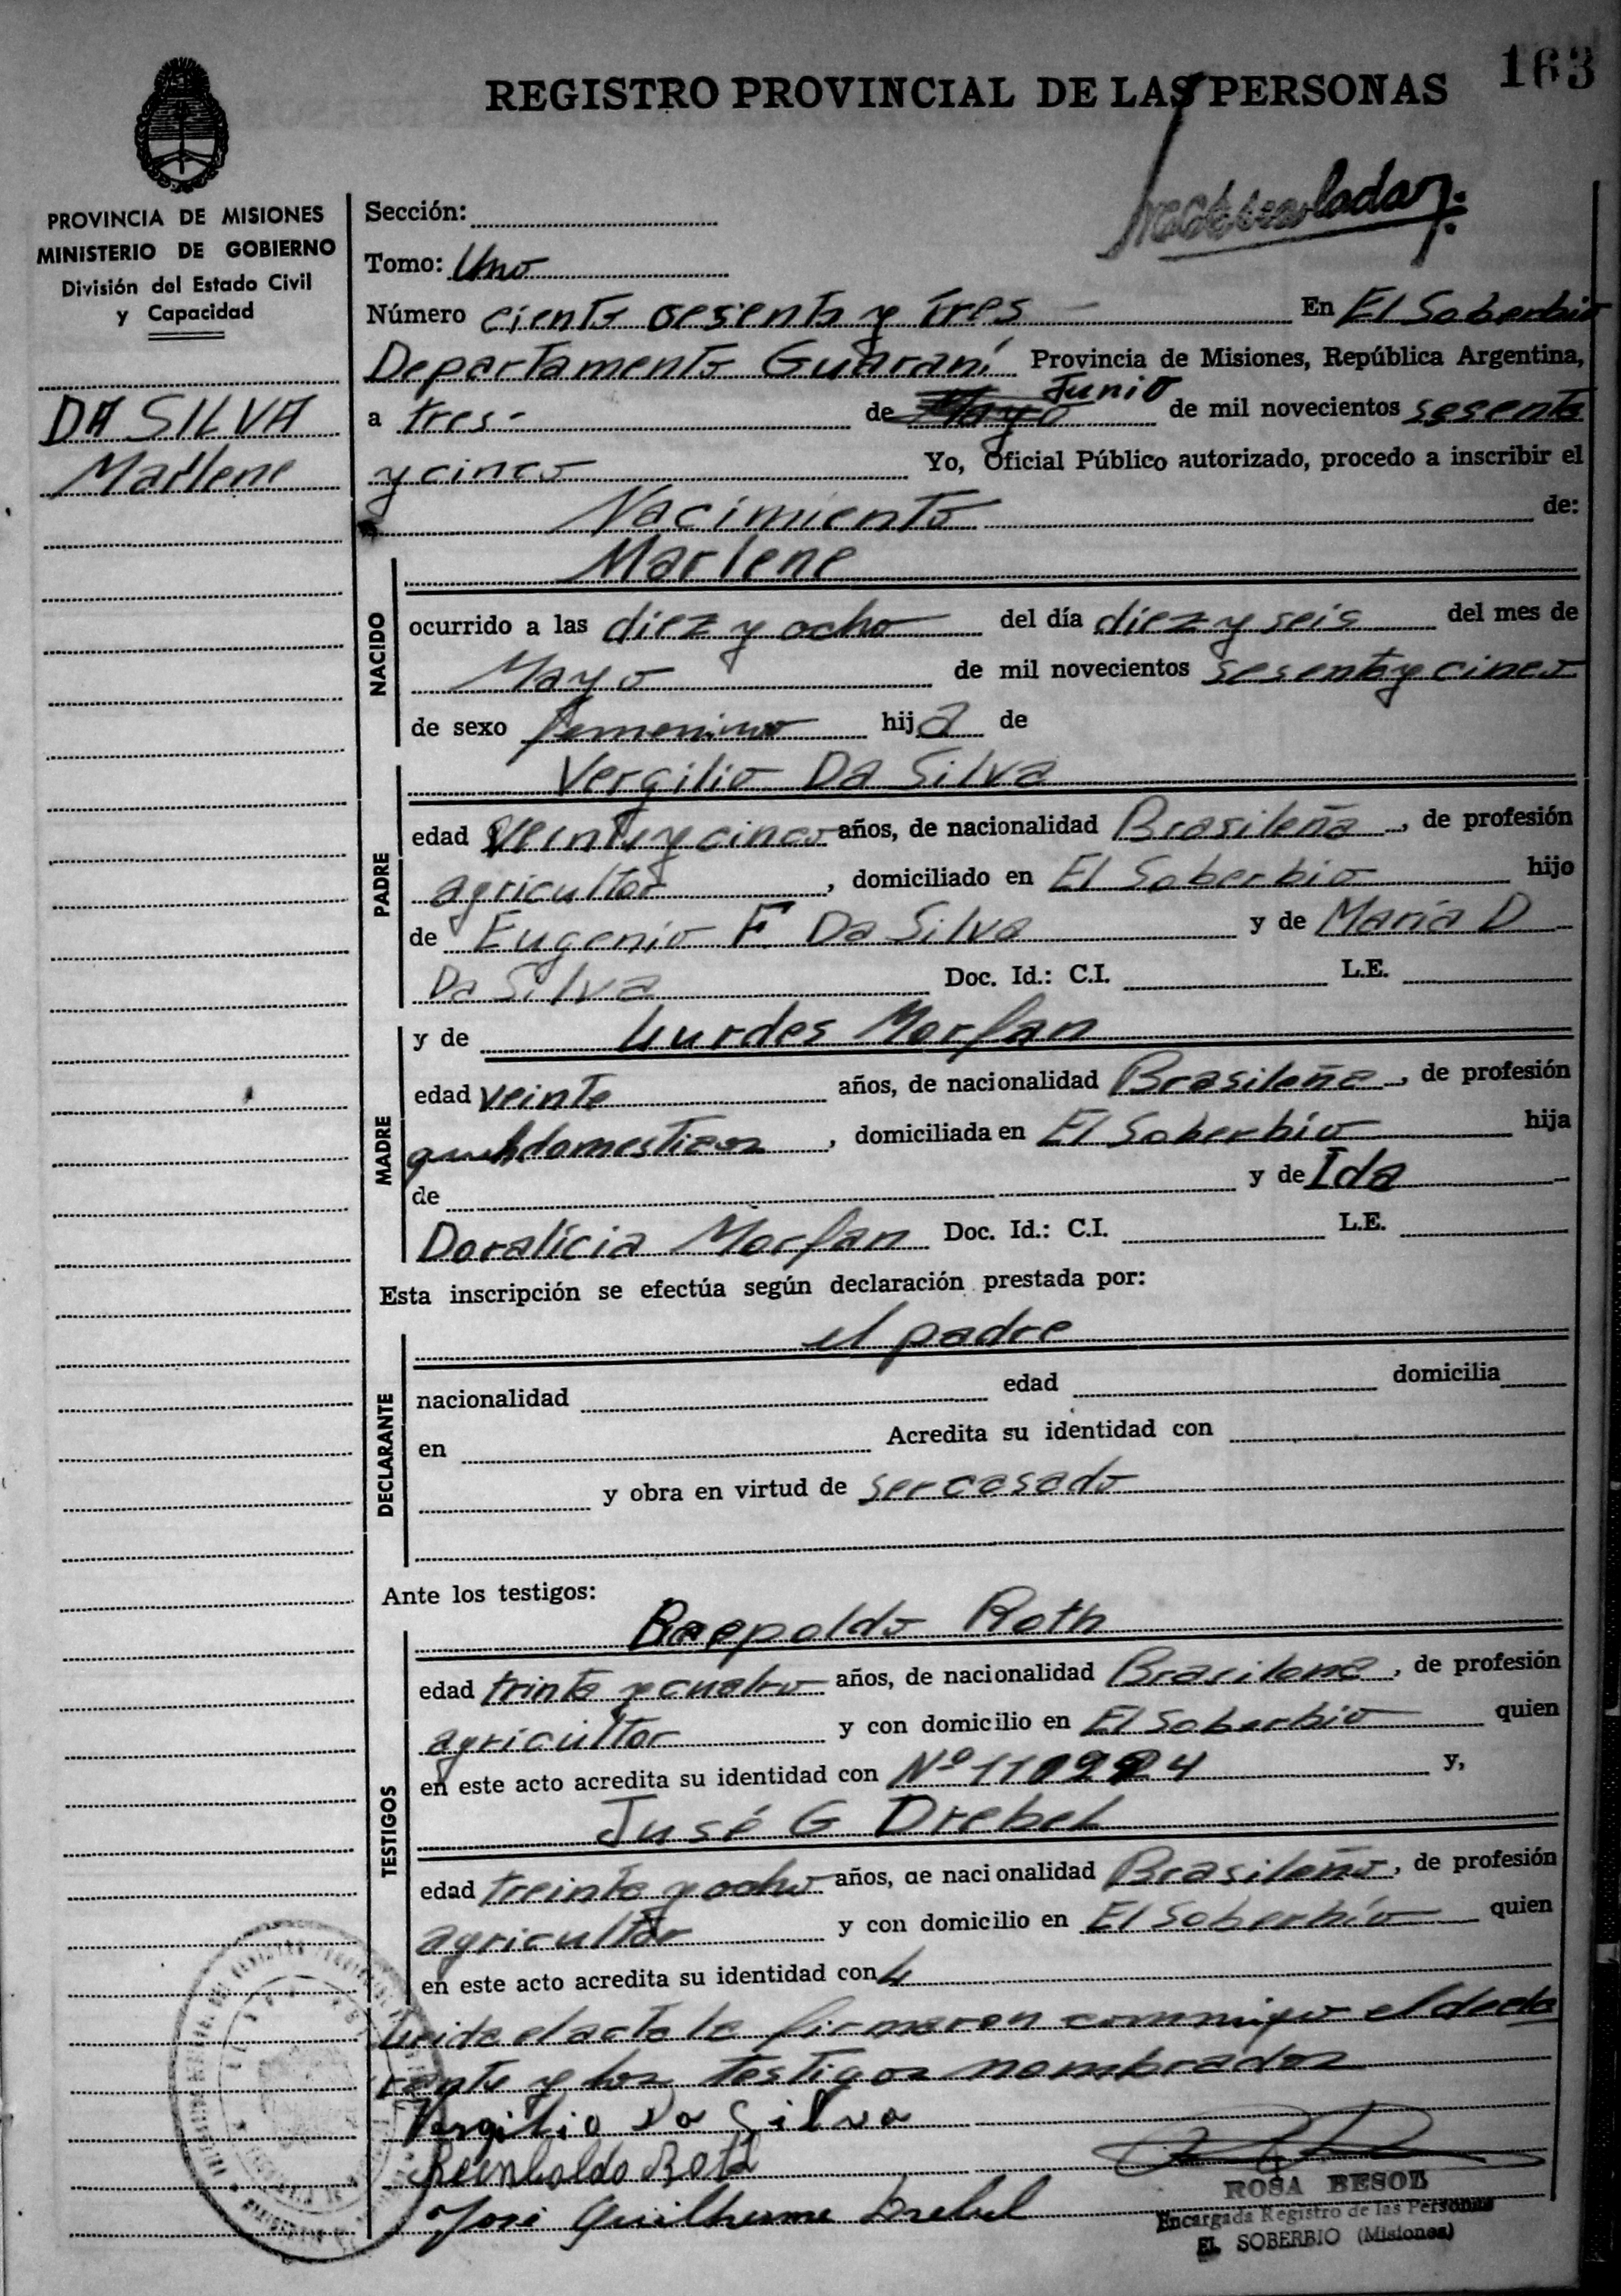 163
REGISTRO PROVINCIAL DE LAS PERSONAS
PROVINCIA DE MISIONES
MINISTERIO DE GOBIERNO
División del Estado Civil
y Capacidad
DA SILVA
Marlene
Sección:
Tomo: Uno
Número ciento sesenta y tres En El Soberbio
Departamento Guaraní Provincia de Misiones, República Argentina,
Junio
a tres de Mayo de mil novecientos sesenta
y cinco Yo, Oficial Público autorizado, procedo a inscribir el
Nacimiento de:
Marlene
NACIDO
ocurrido a las diez y ocho del día diez y seis del mes de
Mayo de mil novecientos sesenta y cinco
de sexo femenino hija de
Vergilio Da Silva
PADRE
edad Veinte y cinco años, de nacionalidad Brasileña, de profesión
agricultor, domiciliado en El Soberbio hijo
de Eugenio F Da Silva y de María D
Da Silva Doc. Id.: C.I. L.E.
y de Lurdes Morfan
MADRE
edad veinte años, de nacionalidad Brasileña, de profesión
domesticos, domiciliada en El Soberbio hija
de y de Ida
Doralícia Morfan Doc. Id.: C.I. L.E.
Esta inscripción se efectúa según declaración prestada por:
el padre
DECLARANTE
nacionalidad edad domicilia
en Acredita su identidad con
y obra en virtud de ser casado
Ante los testigos:
Roth
TESTIGOS
edad trinta y cuatro años, de nacionalidad Brasilena, de profesión
agricultor y con domicilio en El Soberbio quien
en este acto acredita su identidad con Nº y,
José G Drebel
edad treinta y ocho años, de nacionalidad Brasileño, de profesión
agricultor y con domicilio en El Soberbio quien
en este acto acredita su identidad con
Leida el acta la firmaron conmigo el decla
rante y los testigos nombrados
Vergilio Da Silva
Reinholdo Roth
José Guilherme Drebel
ROSA BESOL
Encargada Registro de las Personas
EL SOBERBIO (Misiones)